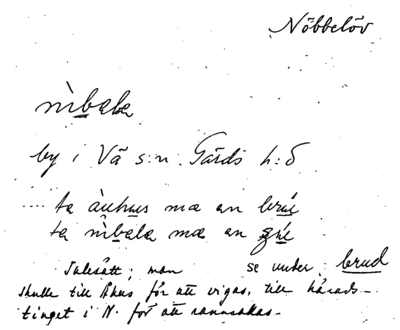 Nöbbelöv
nìbələ
by i Vä s:n. Gärds h:d
.... ta àuhus mæ an brú
ta nìbələ mæ an
Talesätt; man se under brud
skulle till Åhus för att vigas, till härads-
tinget i N. för att rannsakas.